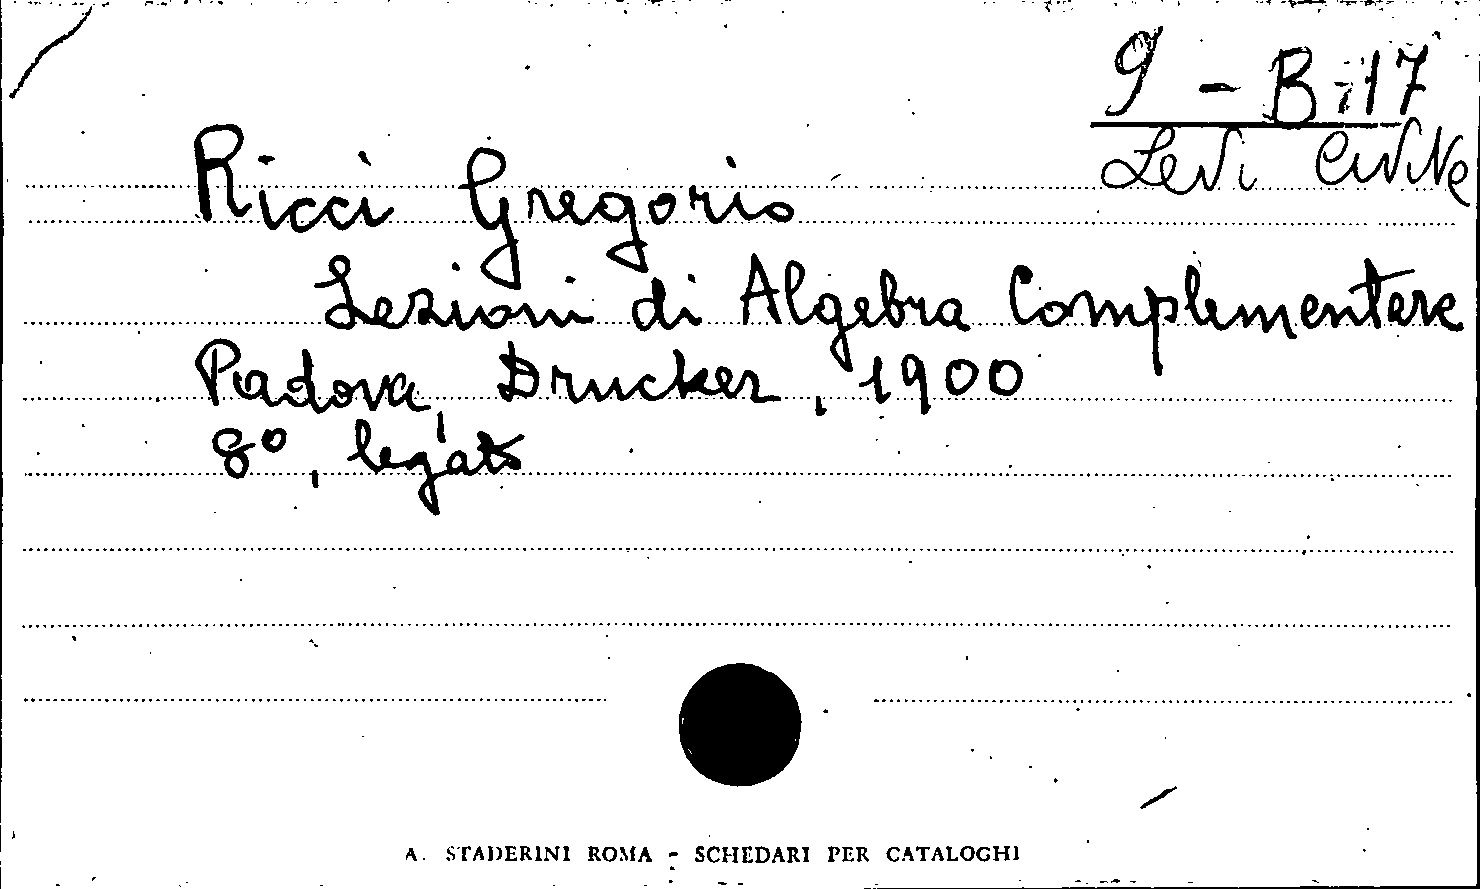 9 - B-17
Levi Civita
Ricci Gregorio
Lezioni di Algebra Complementare
Padova, Drucker, 1900
8º, legato
A. STADERINI ROMA - SCHEDARI PER CATALOGHI